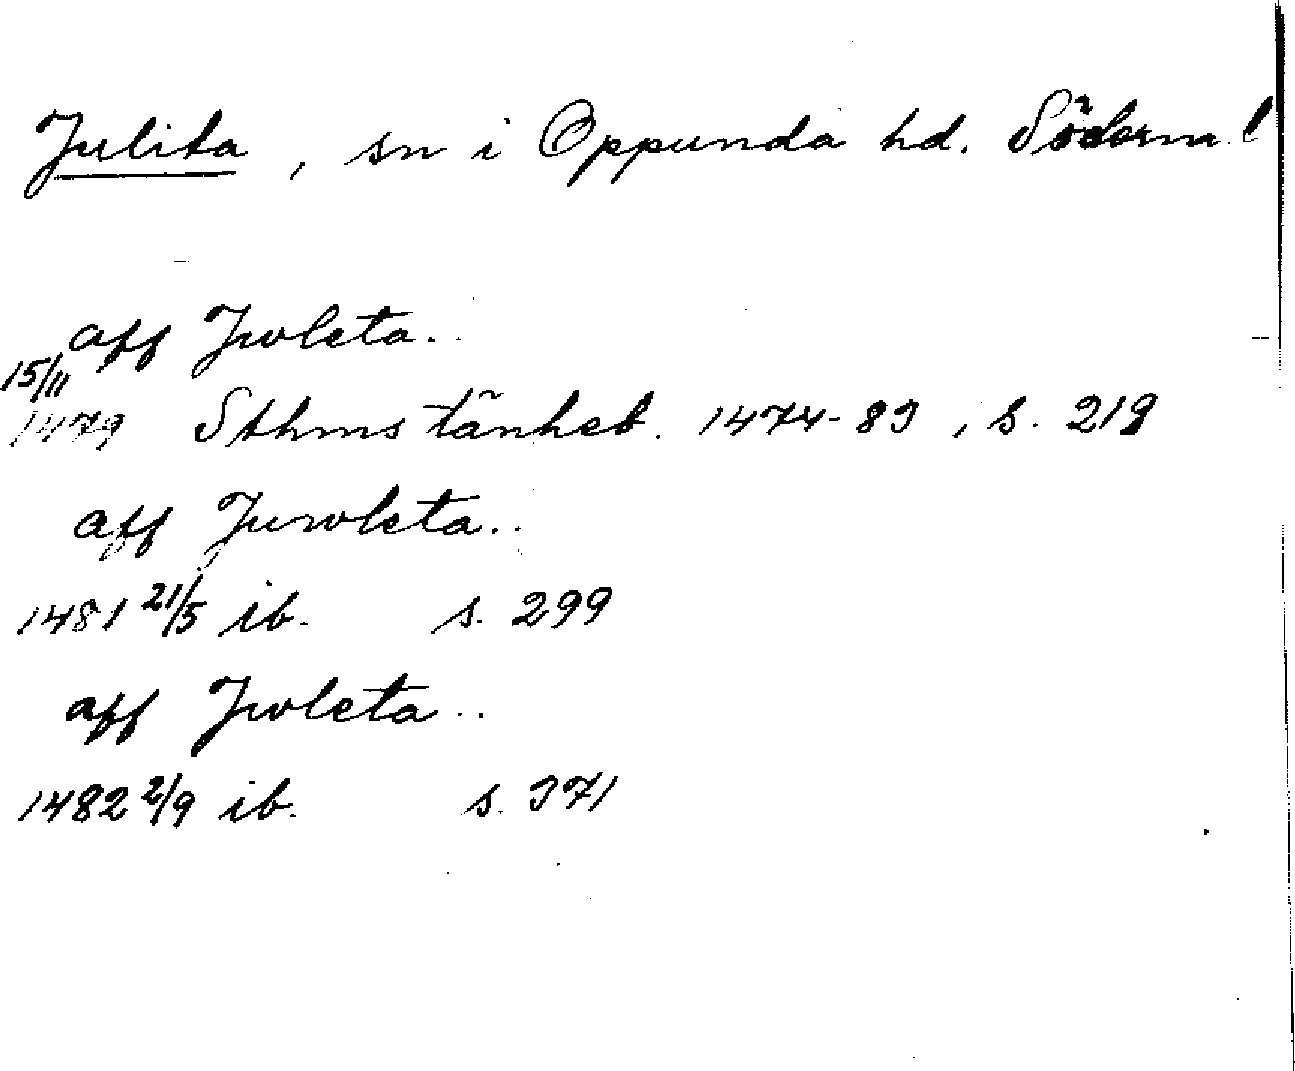 Julita, sn i Oppunda hd. Söderm.l
aff Jwleta..
15/11
1479 Sthms tänkeb. 1474-83, s. 219
aff Juwleta..
1481 21/5 ib. s. 299
aff Jwleta..
1482 2/9 ib. s. 371